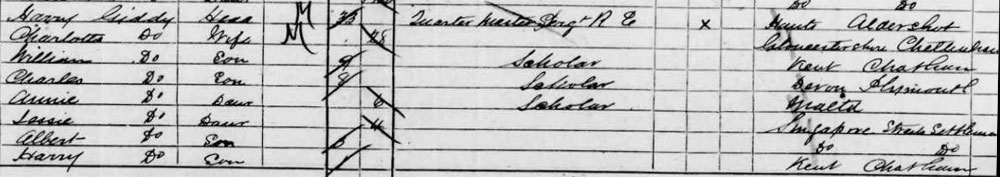 Do Do
Harry Giddy Head M Quarter Master Sergt R E x Hants Aldershot
Charlotte Do Wife M 28 Gloucestershire Cheltenham
William Do Son 9 Scholar Kent Chatham
Charles Do Son 8 Scholar Devon Plymouth
Annie Do Daur 6 Scholar Malta
Jessie Do Daur 4 Singapore Straits Settlement
Albert Do Son Do Do
Harry Do Son 1 Kent Chatham